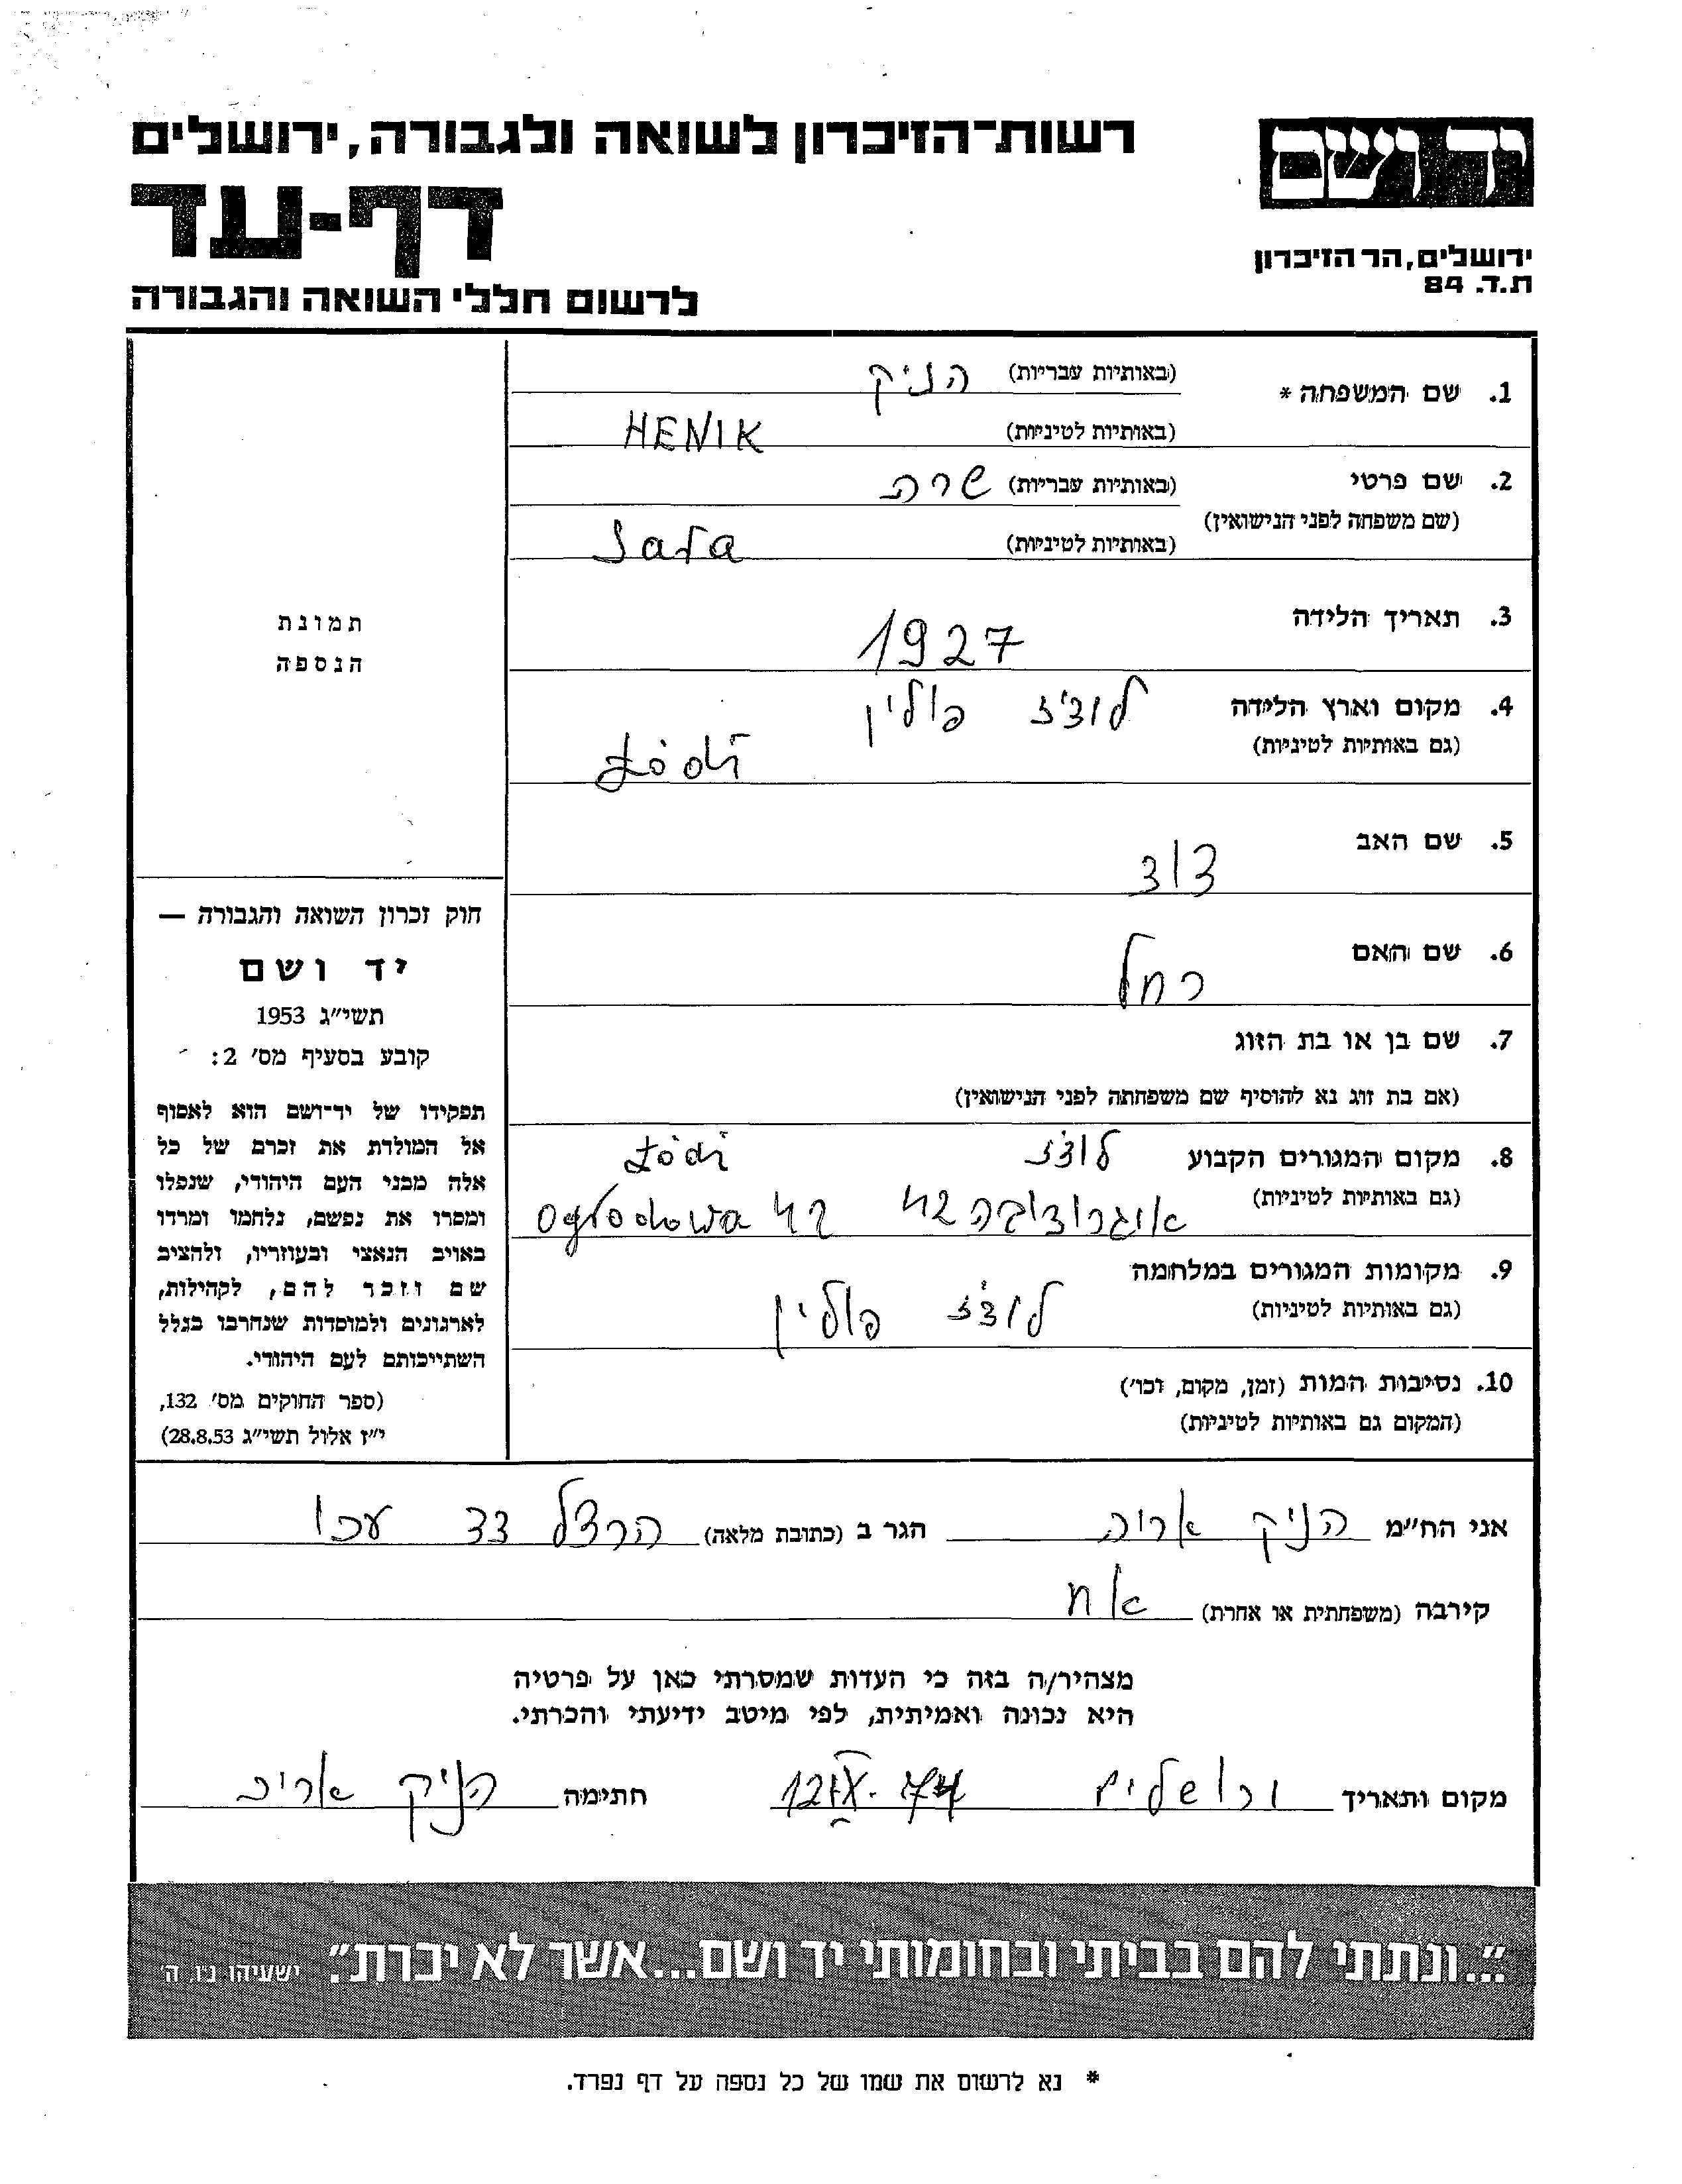 יד ושם
רשות־הזיכרון לשואה ולגבורה, ירושלים
דף-עד
ירושלים, הר הזיכרון
ת.ד. 84
לרשום חללי השואה והגבורה
1. שם המשפחה * (באותיות עבריות) הניק
(באותיות לטיניות) HENIK
2. שם פרטי (באותיות עבריות) שרה
(שם משפחה לפני הנישואין)
(באותיות לטיניות) Sara
3. תאריך הלידה 1927
4. מקום וארץ הלידה לודז' פולין
(גם באותיות לטיניות) Łódź
5. שם האב דוד
6. שם האם רחל
7. שם בן או בת הזוג
(אם בת זוג נא להוסיף שם משפחתה לפני הנישואין)
8. מקום המגורים הקבוע לודז' Łódź
(גם באותיות לטיניות) אוגרודובה 42 Ogrodowa 42
9. מקומות המגורים במלחמה
(גם באותיות לטיניות) לודז' פולין
10. נסיבות המות (זמן, מקום, וכו')
(המקום גם באותיות לטיניות)
תמונת
הנספה
חוק זכרון השואה והגבורה —
יד ושם
תשי"ג 1953
קובע בסעיף מס' 2:
תפקידו של יד־ושם הוא לאסוף
אל המולדת את זכרם של כל
אלה מבני העם היהודי, שנפלו
ומסרו את נפשם, נלחמו ומרדו
באויב הנאצי ובעוזריו, ולהציב
שם וזכר להם, לקהילות,
לארגונים ולמוסדות שנחרבו בגלל
השתייכותם לעם היהודי.
(ספר החוקים מס' 132,
י"ז אלול תשי"ג 28.8.53)
אני הח"מ הניק אריה הגר ב (כתובת מלאה) הרצל 33 עכו
קירבה (משפחתית או אחרת) אח
מצהיר/ה בזה כי העדות שמסרתי כאן על פרטיה
היא נכונה ואמיתית, לפי מיטב ידיעתי והכרתי.
מקום ותאריך ירושלים 12.IX.74 חתימה הניק אריה
"...ונתתי להם בביתי ובחומותי יד ושם...אשר לא יכרת". ישעיהו נ"ו, ה'
* נא לרשום את שמו של כל נספה על דף נפרד.